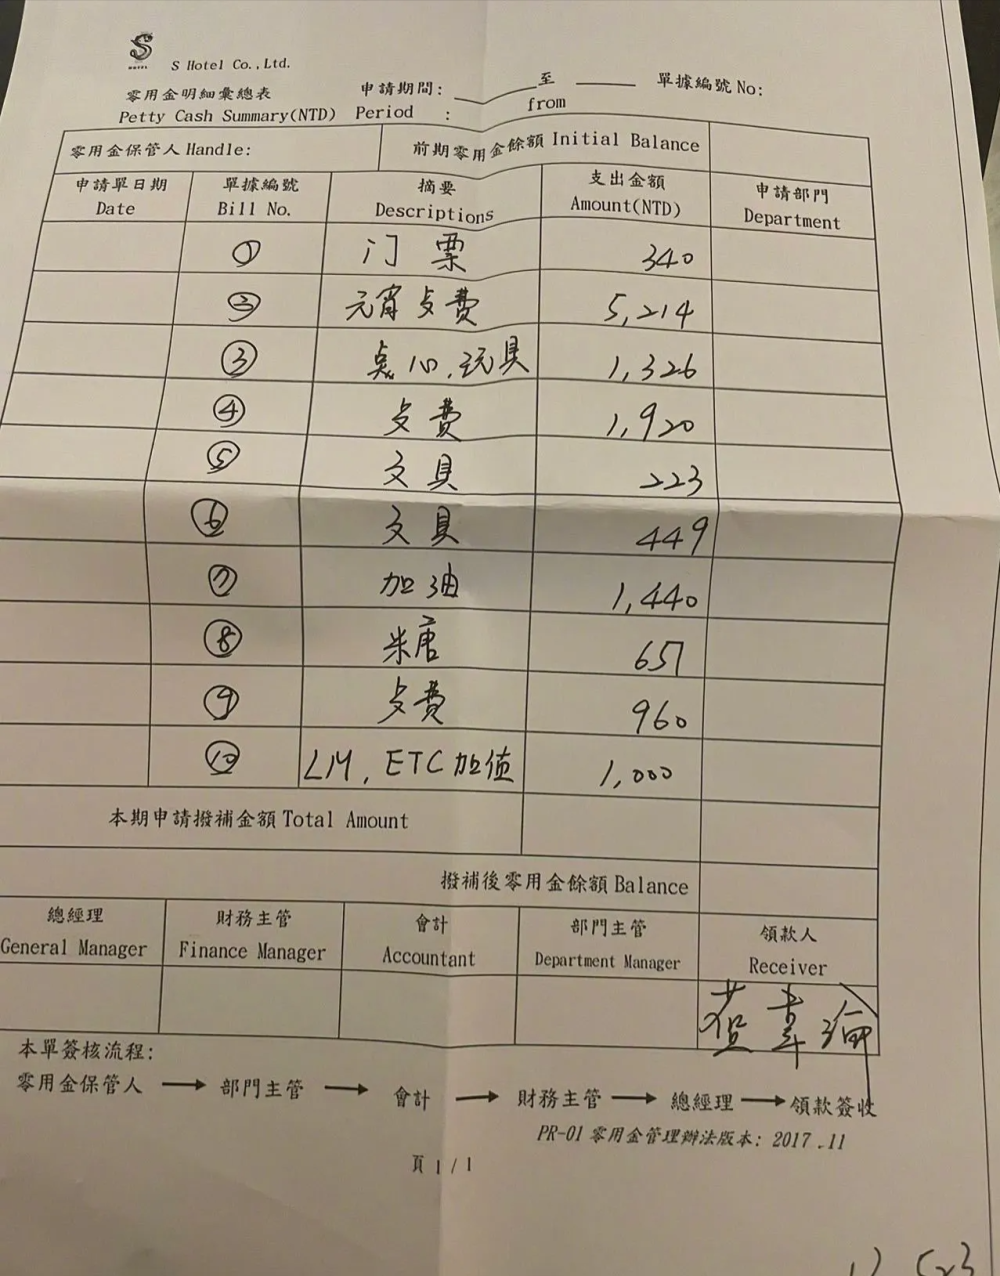 S Hotel Co.,Ltd.
零用金明細彙總表 申請期間: 至 單據編號 No:
Petty Cash Summary(NTD) Period : from
零用金保管人 Handle: 前期零用金餘額 Initial Balance
申請單日期 單據編號 摘要 支出金額 申請部門
Date Bill No. Descriptions Amount(NTD) Department
① 门票 340
② 元宵 费 5,214
③ 点心,玩具 1,326
④ 費 1,920
⑤ 文具 223
⑥ 文具 449
⑦ 加油 1,440
⑧ 糖 657
⑨ 費 960
⑩ ETC 加值 1,000
本期申請撥補金額 Total Amount
撥補後零用金餘額 Balance
總經理 財務主管 會計 部門主管 領款人
General Manager Finance Manager Accountant Department Manager Receiver
本單簽核流程:
零用金保管人 → 部門主管 → 會計 → 財務主管 → 總經理 → 領款簽收
PR-01 零用金管理辦法版本: 2017.11
頁 1 / 1